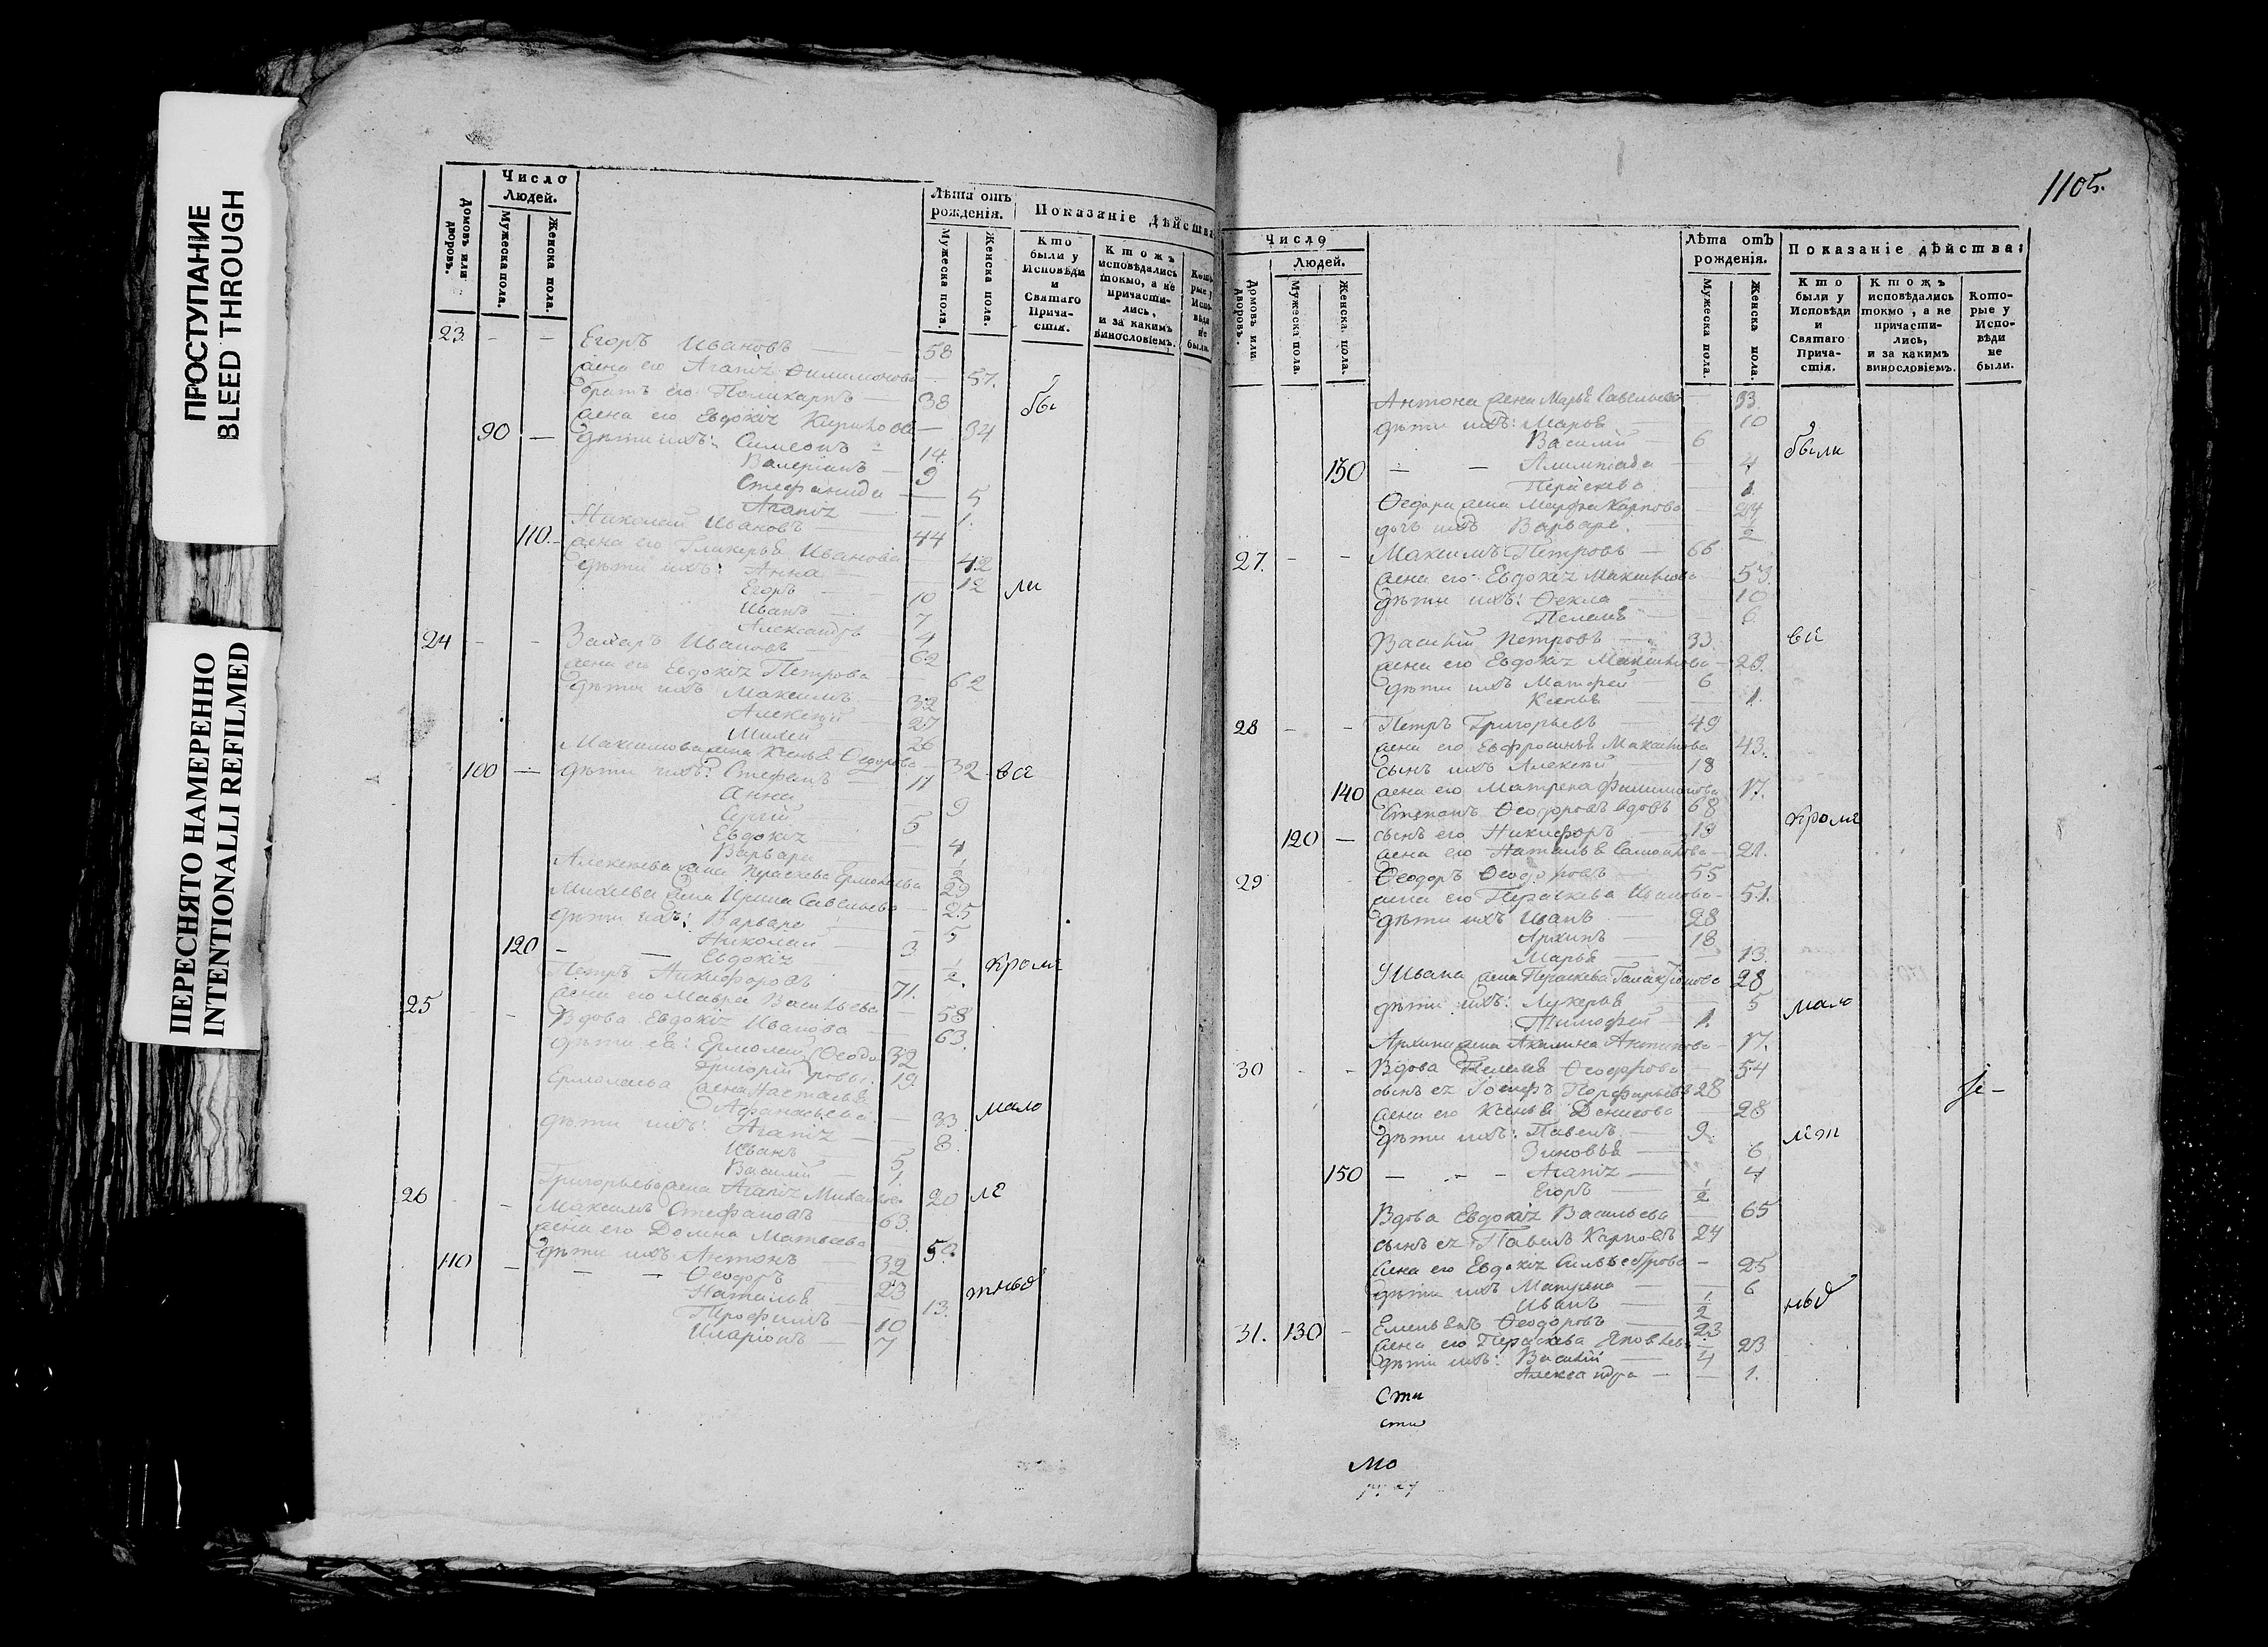 ПРОСТУПАНИЕ
BLEED THROUGH
ПЕРЕСНЯТО НАМЕРЕННО
INTENTIONALLI REFILMED
Число Людей.
Домовъ или дворовъ.
Мужеска пола.
Женска пола.
Лѣта отъ рожденія.
Мужеска пола.
Женска пола.
Показаніе дѣйства
Кто были у Исповѣди и Святаго Прича-стія.
Ктожъ исповѣдались токмо, а не причасти-лись, и за какимъ винословіемъ.
Кото-рые у Испо-вѣди не были.
23 - - Егоръ Ивановъ — 58
жена его Агапiя Филимонова — 57.
братъ его Поликарпъ — 38 бы
жена его Евдокiя — 34
90 — дѣти ихъ: Симеонъ 14
Валерiанъ — 9
Стефанида — 5
Агапiя — 1.
Николай Ивановъ 44
110. жена его Гликерья Иванова 42
дѣти ихъ: Анна 12 ли
Егоръ 10
Иванъ 7
Александръ 4
24 - - Захаръ Ивановъ 62
жена его Евдокiя Петрова 62
дѣти ихъ Максимъ 32
Алексѣй 27
Михей 26
Максимова жена Ксенья Ѳедорова 32 все
100 — дѣти ихъ: Стефанъ 11
Анна 9
Сергiй 5
Евдокiя 4
Варвара 1/2
Алексѣева жена Пераскева Ермолаева 29
Михеева жена Ирина Савельева 25
дѣти ихъ: Варвара 5
Николай 3
120 - — Евдокiя 1/2. кромѣ
Петръ Никифоровъ 71.
25 - - жена его Мавра Васильева 58
Вдова Евдокiя Иванова 63.
дѣти ея: Ермолай Ѳеодо 32
Григорiй ровы. 19
Ермолаева жена Настасья
Афанасьева — 33 мало
дѣти ихъ: Агапiя — 8
Иванъ 5
Василiй 1.
Григорьева жена Агапiя 20 лѣ
26 - - Максимъ Стефановъ 63
жена его Домна Матвѣева
110 - дѣти ихъ Антонъ 32
— Ѳеодоръ 23
Наталья 13. тныхъ
Трофимъ — 10
Иларiонъ — 7
1105.
Число
Людей.
Домовъ или дворовъ.
Мужеска пола.
Женска пола.
Лѣта отъ рожденія.
Мужеска пола.
Женска пола.
Показаніе дѣйства:
Кто были у Исповѣди и Святаго Прича-стія.
Ктожъ исповѣдались токмо, а не причасти-лись, и за какимъ винословіемъ.
Кото-рые у Испо-вѣди не были.
Антона жена Марья Савельева — 33.
дѣти ихъ: Мавра — 10
Василiй — 6 были
130 - — Алимпiада — 4
Пераскева 1.
Ѳедора жена Марфа Карпова 24
дочь ихъ Варвара. 1/2
27. - - Максимъ Петровъ — 66
жена его Евдокiя 53
дѣти ихъ: Ѳекла 10
Пелагѣя 6
Василiй Петровъ — 33. все
жена его Евдокiя — 29.
дѣти ихъ Матфей — 6
Ксенья 1.
28 - - Петръ Григорьевъ 49
жена его Евфросинья 43.
сынъ ихъ Алексѣй — 18
140 жена его Матрена Филимонова 17.
Степанъ Ѳеодоровъ вдовъ 68 кромѣ
120 — сынъ его Никифоръ — 19
жена его Наталья — 21.
29 Ѳеодоръ Ѳеодоровъ — 55
жена его Пераскева Иванова — 51.
дѣти ихъ Иванъ 28
Архипъ — 18
Марья 13.
У Ивана жена Пераскева Галактiонова 28
дѣти ихъ: Лукерья 5 мало
Тимофей — 1.
Архипа жена Акилина Антипова — 17.
30 - - Вдова Ѳеодорова — 54
сынъ ея Iосифъ Порфирьевъ 28
жена его Ксенья Денисова 28
дѣти ихъ: Павелъ — 9. лѣт
Зиновья 6
150 — - - Агапiя — 4
Егоръ — 1/2
Вдова Евдокiя Васильева 65
сынъ ея Павелъ Карповъ 24
жена его Евдокiя Сильвестрова — 25
дѣти ихъ Матрена — 6
Иванъ — 1/2 ныхъ
31. 130 - Емельянъ Ѳеодоровъ — 23
жена его Пераскева Яковлева 23
дѣти ихъ: Василiй — 4
Александра — 1.
Сти
сти
Мо